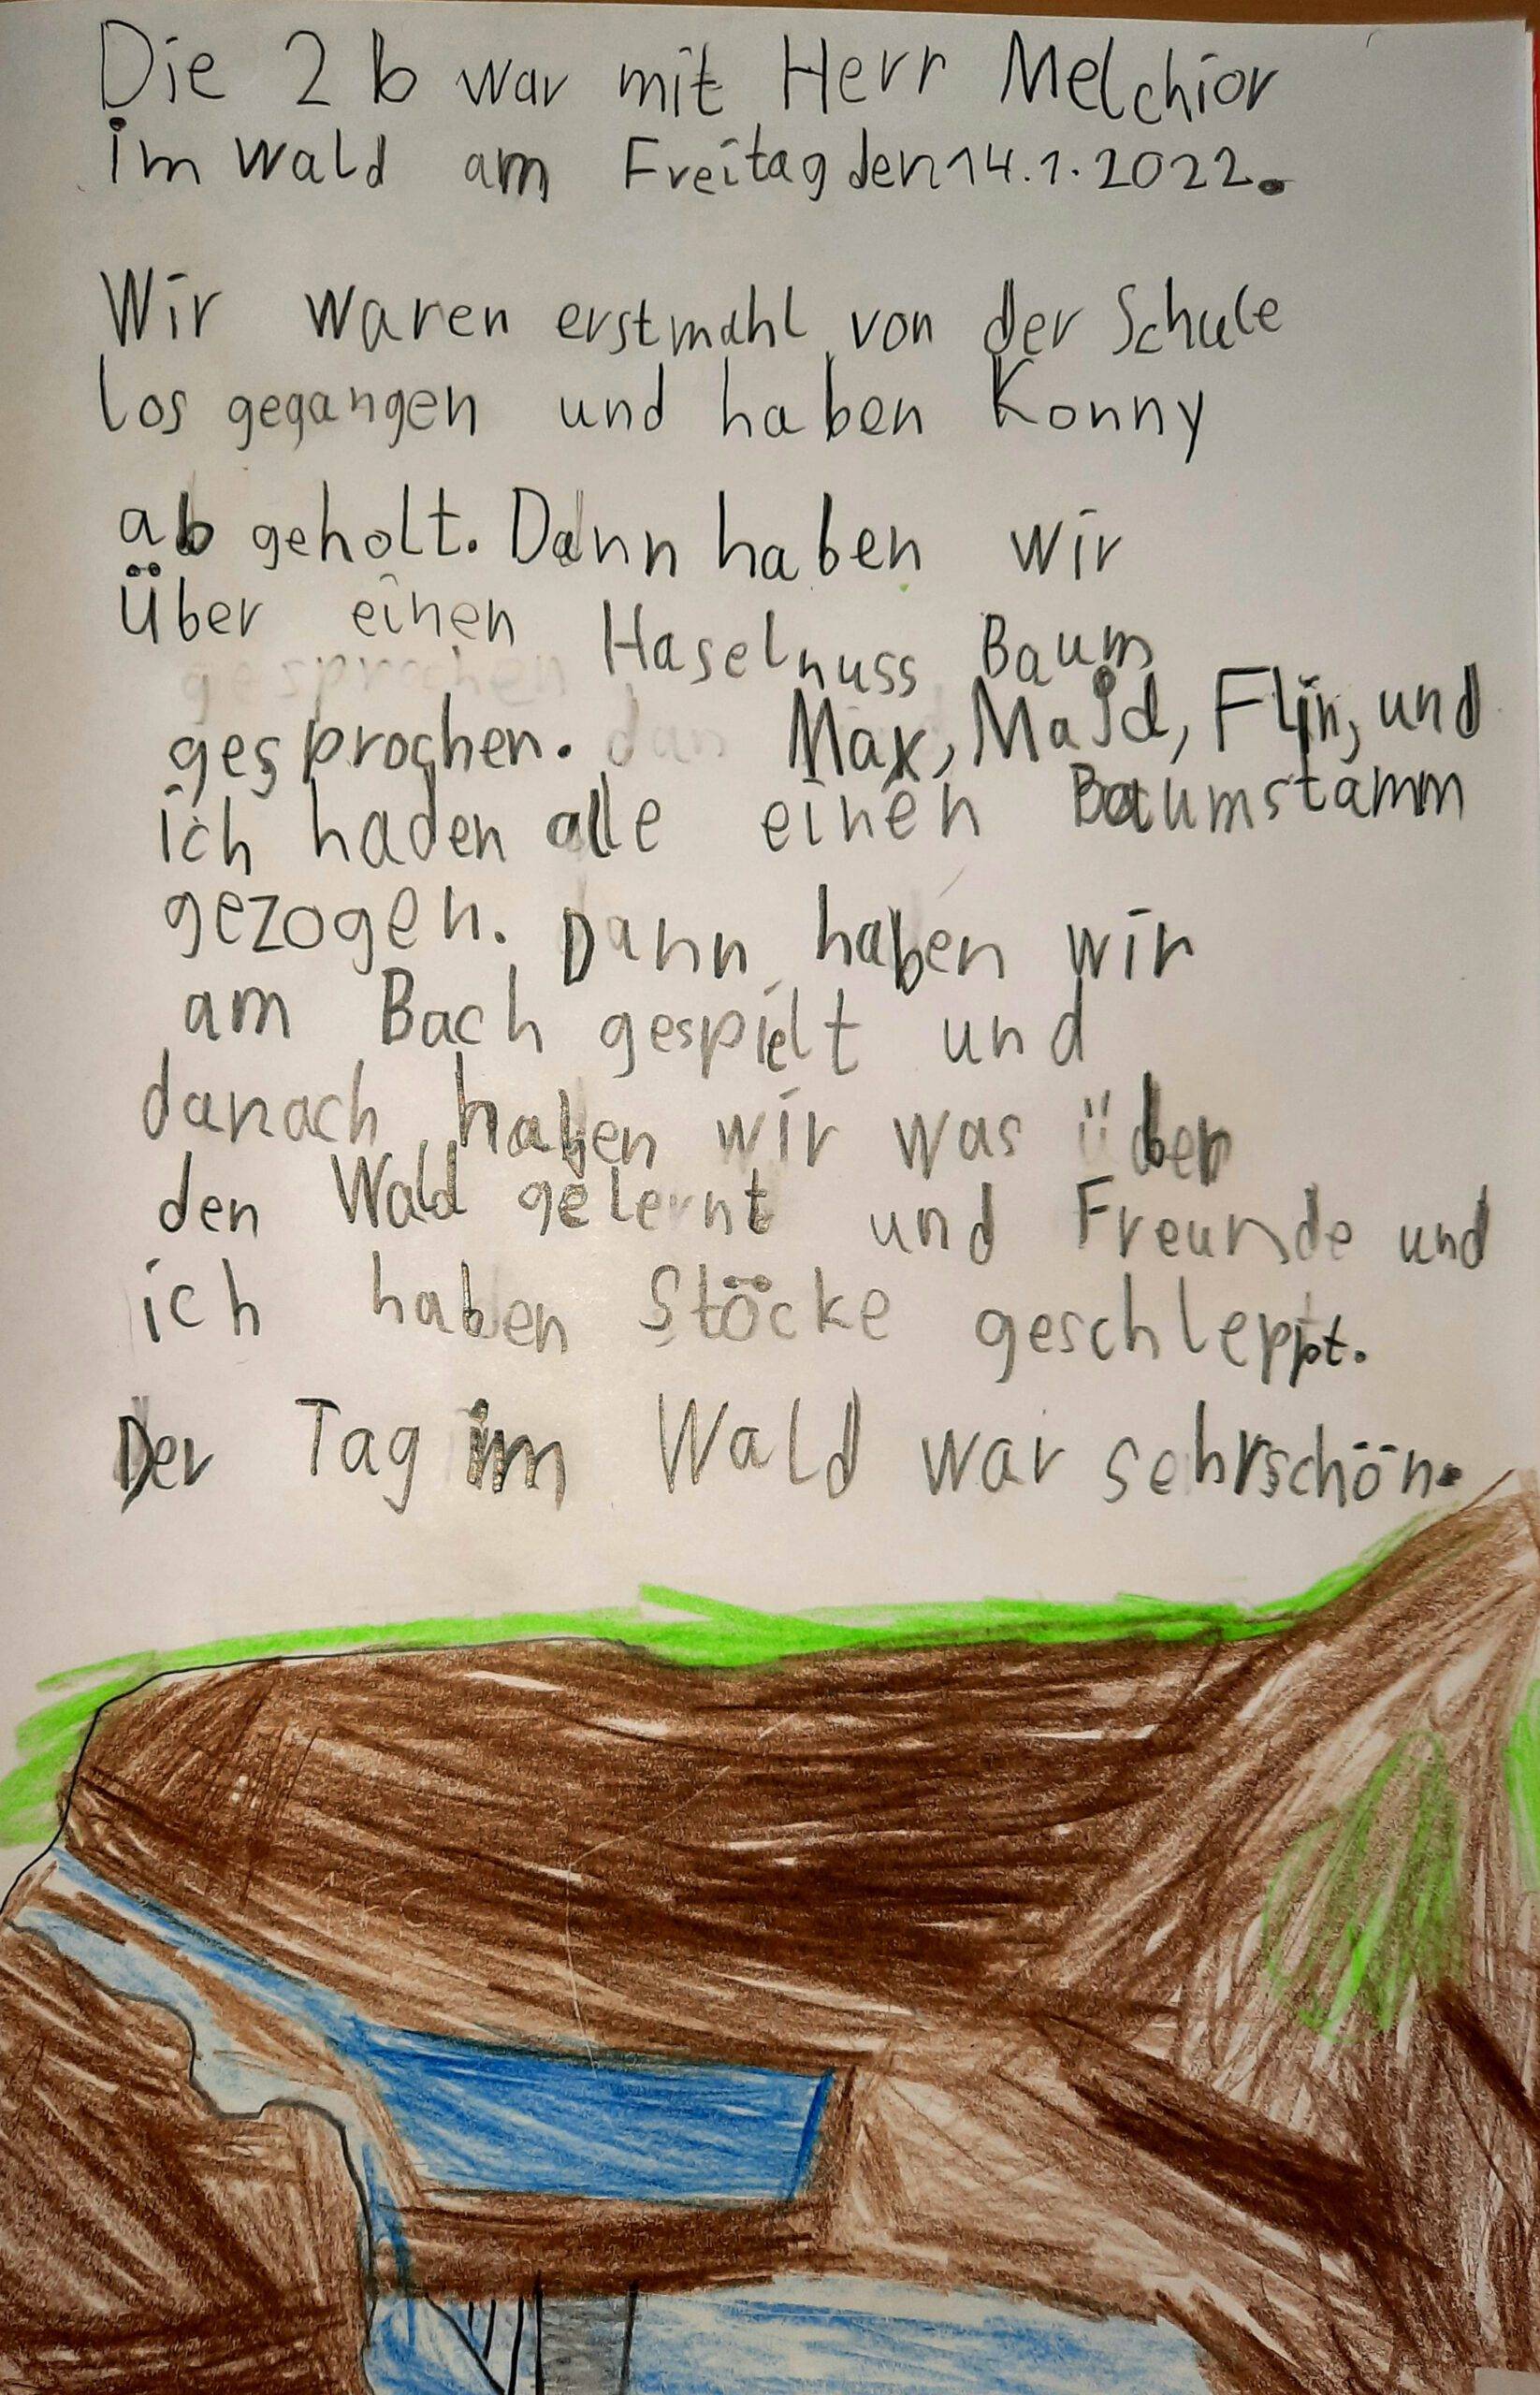 Die 2b war mit Herr Melchior
im Wald am Freitag den 14.1.2022.
Wir waren erstmahl von der Schule
los gegangen und haben Konny
ab geholt. Dann haben wir
über einen Haselnuss Baum
gesprochen. Max, Majd, Flin, und
ich haden alle einen Baumstamm
gezogen. Dann haben wir
am Bach gespielt und
danach haben wir was über
den Wald gelernt und Freunde und
ich haben Stöcke geschleppt.
Der Tag im Wald war sehr schön.